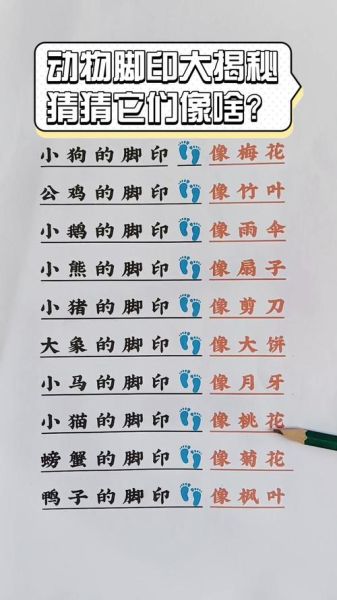 动物脚印大揭秘
猜猜它们像啥？
小狗的脚印 像梅花
公鸡的脚印 像竹叶
小鹅的脚印 像雨伞
小熊的脚印 像扇子
小猪的脚印 像剪刀
大象的脚印 像大饼
小马的脚印 像月牙
小猫的脚印 像桃花
螃蟹的脚印 像菊花
鸭子的脚印 像枫叶